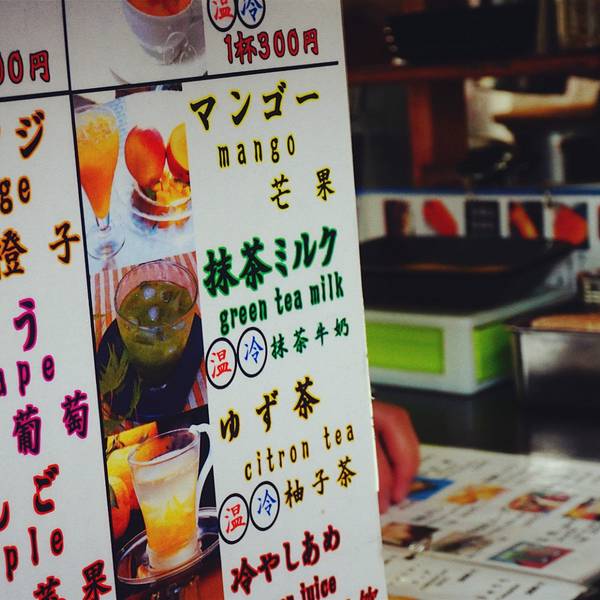 温 冷
1杯300円
00円
マンゴー
mango
芒果
抹茶ミルク
green tea milk
温 冷 抹茶牛奶
ゆず茶
citron tea
温 冷 柚子茶
冷やしあめ
juice
ジ
ge
橙子
う
ape
葡萄
ご
ple
果